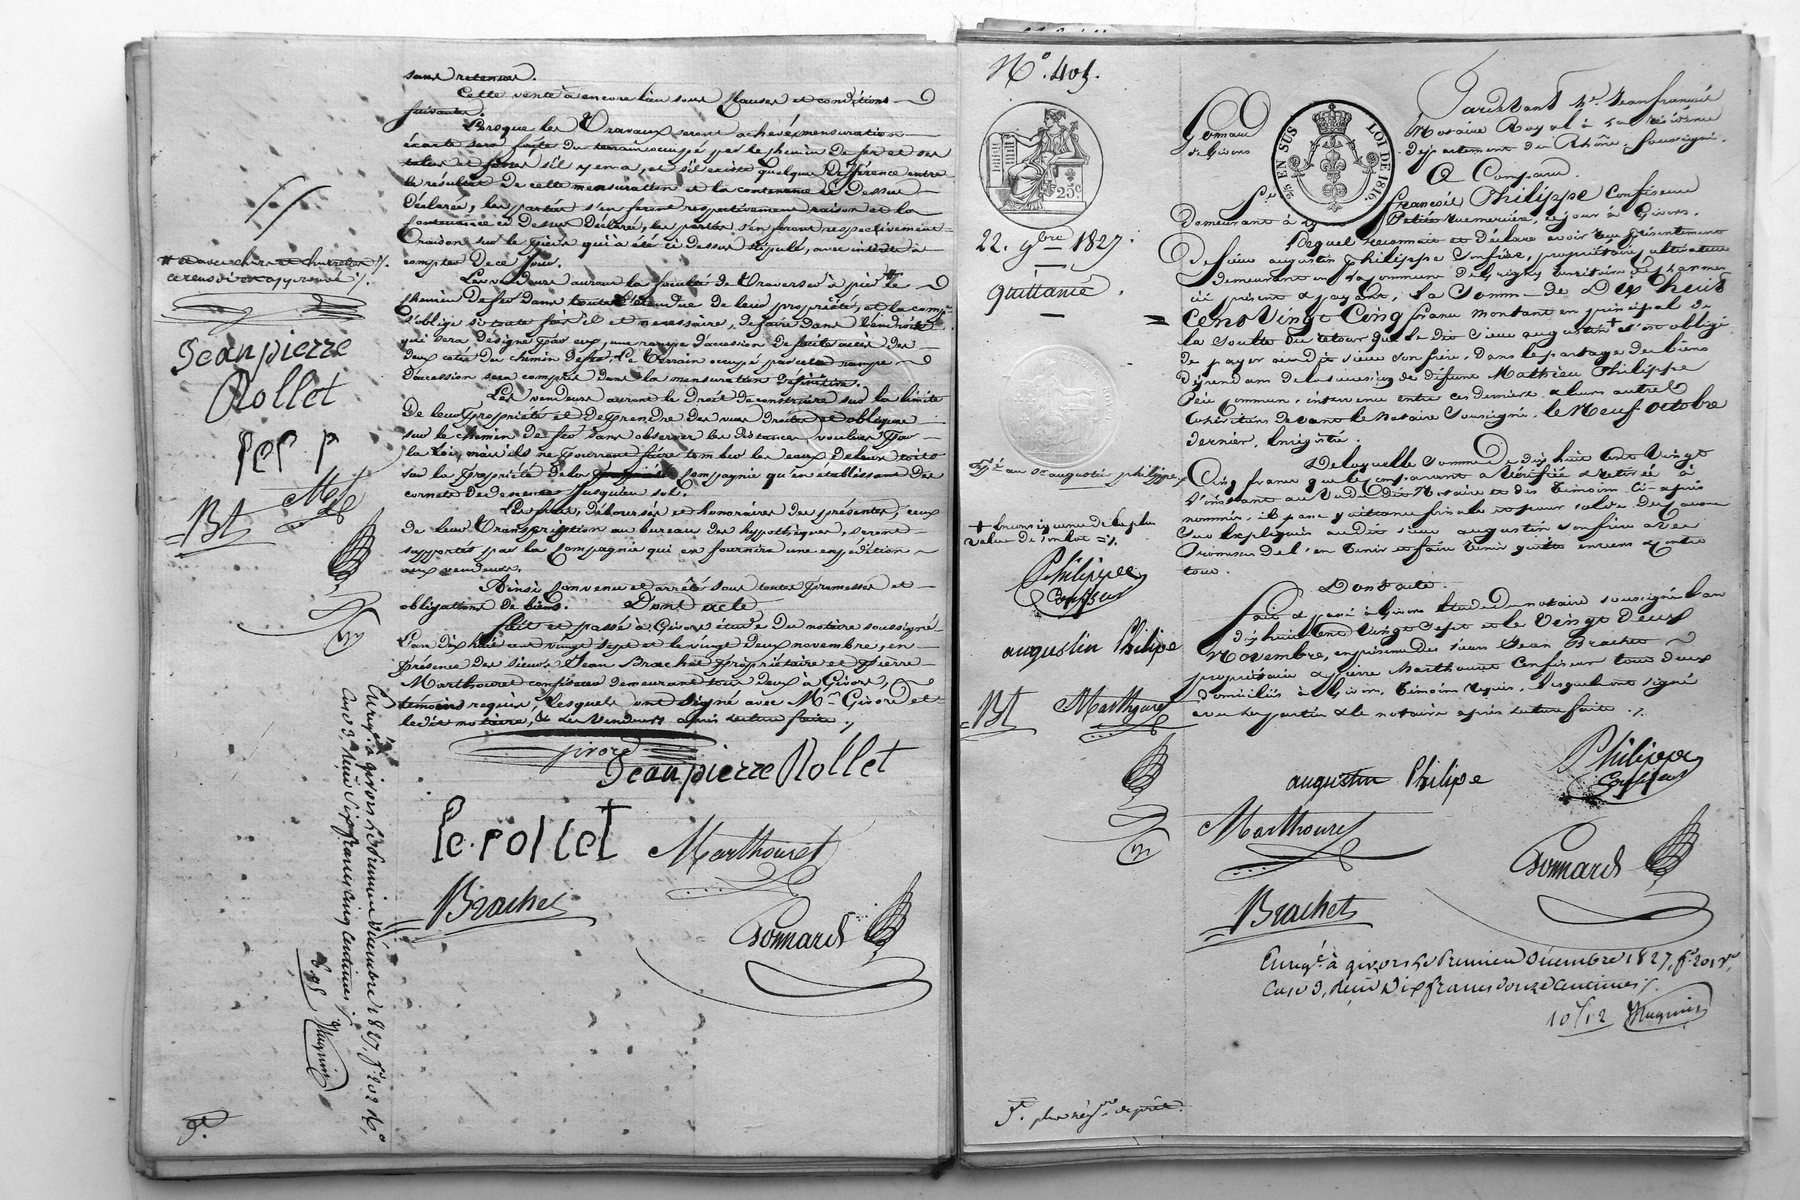 sans retenues.
Cette vente a encore lieu sous clauses et conditions
suivantes.
Lorsque les travaux seront achevés mensuration
exacte sera faite du terrain occupé par le chemin de fer et ses
talus et fossés s'il y en a, et s'il existe quelque différence entre
le résultat de cette mensuration et la contenance ci dessus
déclarée, les parties s'en feront respectivement raison
contenance ci dessus déclarée, les parties s'en feront respectivement
raison sur le pied qui a été ci dessus stipulé, avec intérêts à
compter de ce jour.
Les vendeurs auront la faculté de traverser à pied le
chemin de fer dans toute l'étendue de leur propriété, et la comp.e
s'oblige si toute fois il est nécessaire, de faire dans l'endroit
qui sera désigné par eux, une rampe d'accession de facile accès des
deux cotés du chemin de fer. Le terrain occupé par cette rampe
d'accession sera compris dans la mensuration définitive.
Les vendeurs auront le droit de construire sur la limite
de leur propriété et de prendre des vues droites et obliques
sur le chemin de fer sans observer les distances voulues par
la loi, mais ils ne pourront faire tomber les eaux de leurs toits
sur la propriété de la Compagnie qu'en établissant des
cornets de descente jusqu'au sol.
Les frais, déboursés et honoraires des présentes, ceux
de leur transcription au bureau des hypothèques, seront
supportés par la compagnie qui en fournira une expédition
aux vendeurs.
Ainsi convenu et arrêté sous toutes promesses et
obligations de biens. Dont acte
Fait et passé à Givors étude du notaire soussigné
L'an dix huit cent vingt sept et le vingt deux novembre, en
présence des sieurs Jean Brachet propriétaire et Pierre
Marthouret confiseur demeurant tous deux à Givors,
témoins requis, lesquels ont signé avec M.r Givord et
ledit notaire, & les vendeurs après lecture faite ./.
givord
Jean pierre Rollet
Pe. rollet
Marthouret
Brachet
Bonnard
Jean pierre
Rollet
Pe. r
Bt
Mt
Enreg.é à givors le premier décembre 1827, f.o 202 v.o,
Case 3, reçu six francs cinq centimes ./.
Mugnier
N.o 405.
25c
22. 9bre 1827.
Quittance.
Exp.é au S.r augustin philippe
+ en conséquence de la plus
value de son lot =/.
Philippe
Confiseur
augustin Philipe
Bt
Marthouret
25 EN SUS
LOI DE 1816.
Bonnard
à Givors
Pardevant M.e Jean françois
Notaire Royal à la résidence
département du Rhône, soussigné.
A Comparu
S.r françois Philippe Confiseur
demeurant à Petite rue mercière, ce jour à Givors.
Lequel reconnait et déclare avoir reçu présentement
de sieur augustin Philippe son frère, propriétaire cultivateur
demeurant en la commune de Grigny territoire de
ici présent & payant, la somme de Dix huit
cent vingt cinq francs montant en principal de
la soulte ou retour que le dit sieur augustin + s'est obligé
de payer au dit sieur son frère, dans le partage des biens
dépendans de la succession de défunt Mathieu Philippe
Père commun, intervenu entre ces derniers & leurs autres
cohéritiers devant le notaire soussigné, le Neuf octobre
dernier, Enregistré.
De laquelle somme de dix huit cent vingt
cinq francs que le comparant a vérifiée & retirée à
l'instant au vu dudit Notaire et des témoins ci-après
nommés, il passe quittance finale et pour solde des causes
sus expliquées audit sieur augustin son frère avec
promesse de l'en tenir et faire tenir quitte envers & contre
tous.
Dont acte.
Fait & passé à Givors Etude du notaire soussigné l'an
dix huit cent vingt sept et le vingt deux
Novembre, en présence des sieurs Jean Brachet
propriétaire & pierre Marthouret Confiseur tous deux
domiciliés à Givors, témoins requis, lesquels ont signé
avec les parties & le notaire après lecture faite ./.
augustin Philipe
Philippe
Confiseur
Marthouret
Bonnard
Brachet
Enreg.é à givors le Premier décembre 1827, f.o 201 v.o,
Case 3, reçu dix francs douze centimes ./.
10/12 Mugnier